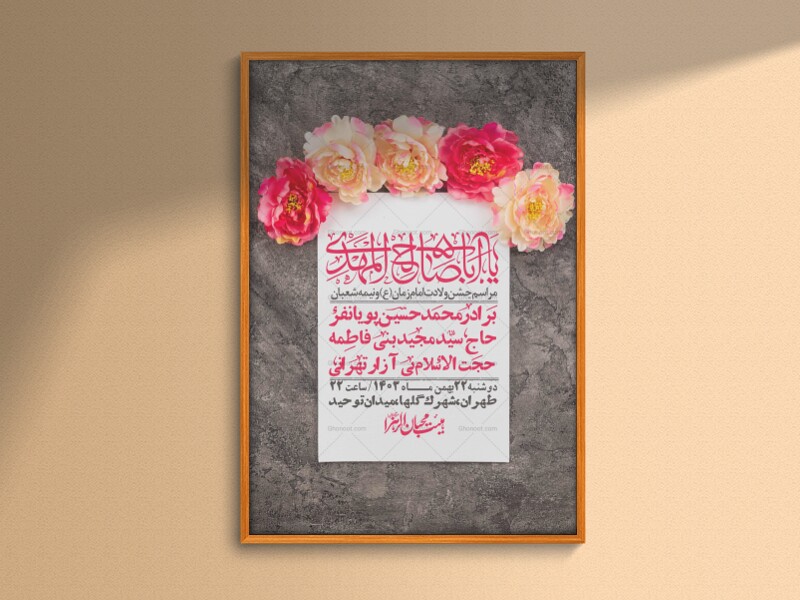 یا اباصالح المهدی
مراسم جشن ولادت امام زمان (ع) و نیمه شعبان
برادر محمد حسین پویانفر
حاج سید مجید بنی فاطمه
حجت الاسلام بی آزار تهرانی
دوشنبه ۲۲ بهمن مـــاه ۱۴۰۳ / ساعت ۲۲
طهران، شهرک گلها، میدان توحید
هیئت محبان الزهرا